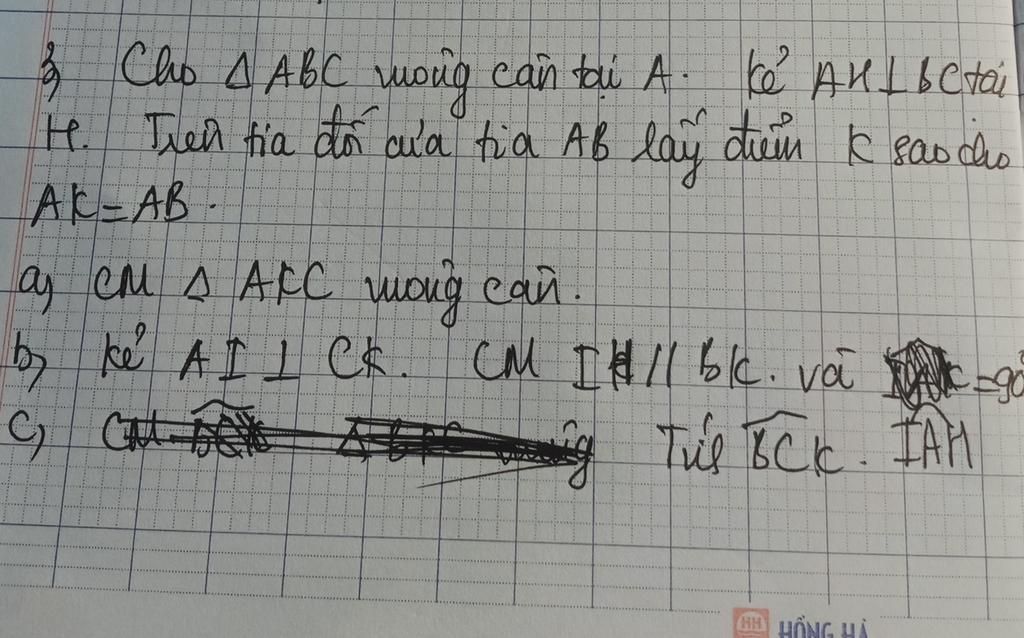 3, Cho Δ ABC vuông cân tại A. kẻ AH⊥BC tại
H. Trên tia đối của tia AB lấy điểm K sao cho
AK=AB.
a, CM Δ AKC vuông cân.
b, kẻ AI⊥CK. CM IH//BK. và =90
c, CM Tính BCK. IAH
HỒNG HÀ